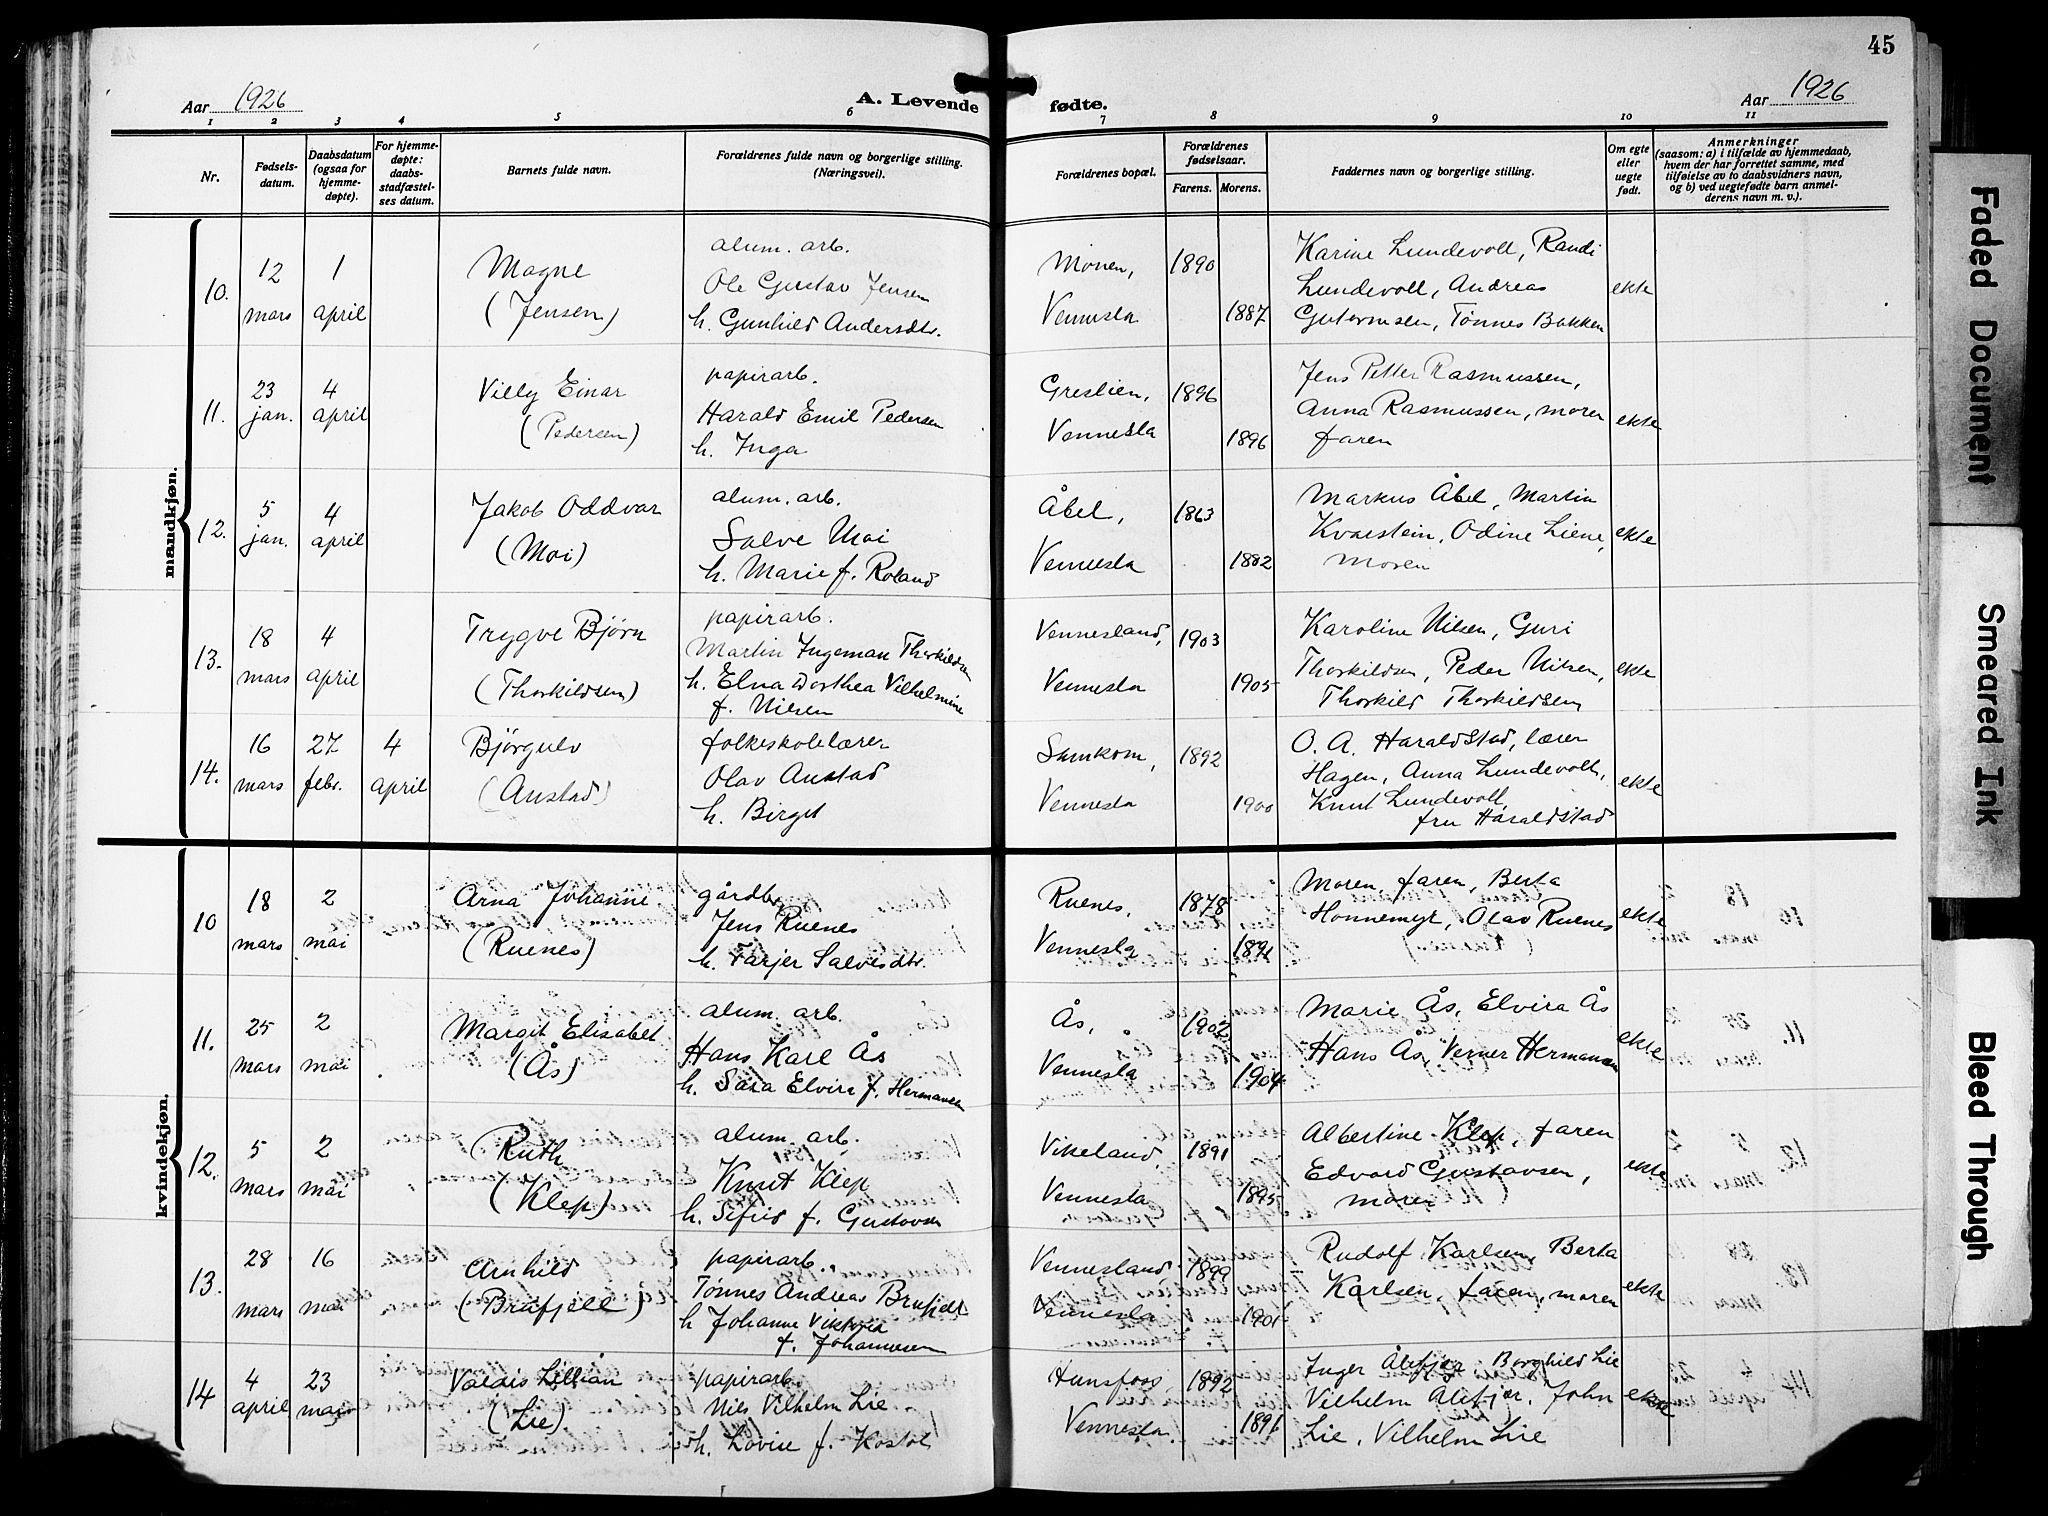 45
Aar 1926
A. Levende
fødte.
Aar 1926
1 2 3 4 5 6 7 8 9 10 11
Nr.
Fødsels-
datum.
Daabsdatum
(ogsaa for
hjemme-
døpte).
For hjemme-
døpte:
daabs-
stadfæstel-
ses datum.
Barnets fulde navn.
Forældrenes fulde navn og borgerlige stilling.
(Næringsvei).
Forældrenes bopæl.
Forældrenes
fødselsaar.
Farens. Morens.
Faddernes navn og borgerlige stilling.
Om egte
eller
uegte
født.
Anmerkninger
(saasom: a) i tilfælde av hjemmedaab,
hvem der har forrettet samme, med
tilføielse av to daabsvidners navn,
og b) ved uegtefødte barn anmel-
derens navn m. v.).
mandkjøn.
10.
12
mars
1
april
Magne
(Jensen)
alum. arb.
Ole Gustav Jensen
h. Gunhild Andersdtr.
Monen,
Vennesla
1890
1887
Karine Lundevoll, Randi
Lundevoll, Andreas
Gutormsen, Tønnes Bakken
ekte
11.
23
jan.
4
april
Villy Einar
(Pedersen)
papirarb.
Harald Emil Pedersen
h. Inga
Greslien,
Vennesla
1896
1896
Jens Petter Rasmussen,
Anna Rasmussen, moren
faren
ekte
12.
5
jan.
4
april
Jakob Oddvar
(Moi)
alum. arb.
Salve Moi
h. Marie f. Roland
Åbel,
Vennesla
1863
1882
Markus Åbel, Martin
Kvarstein, Odine Liene,
moren
ekte
13.
18
mars
4
april
Trygve Bjørn
(Thorkildsen)
papirarb.
Martin Ingeman Thorkildsen
h. Elna Dorthea Vilhelmine
f. Nilsen
Vennesland,
Vennesla
1903
1905
Karoline Nilsen, Guri
Thorkildsen, Peder Nilsen,
Thorkild Thorkildsen
ekte
14.
16
mars
27
febr.
4
april
Bjørgulv
(Austad)
folkeskolelærer
Olav Austad
h. Birgit
Samkom,
Vennesla
1892
1900
O. A. Haraldstad, lærer
Hagen, Anna Lundevoll,
Knut Lundevoll,
fru Haraldstad
ekte
kvindekjøn.
10
18
mars
2
mai
Arna Johanne
(Ruenes)
gårdbr.
Jens Ruenes
h. Tarjer Salvesdtr.
Ruenes,
Vennesla
1878
1891
Moren, faren, Berta
Honnemyr, Olav Ruenes
ekte
11.
25
mars
2
mai
Margit Elisabet
(Ås)
alum. arb.
Hans Karl Ås
h. Sara Elvira f. Hermansen
Ås,
Vennesla
1902
1904
Marie Ås, Elvira Ås
Hans Ås, Verner Hermansen
ekte
12.
5
mars
2
mai
Ruth
(Klep)
alum. arb.
Knut Klep
h. Sefrid f. Gustavsen
Vikeland,
Vennesla
1891
1895
Albertine Klep, faren
Edvard Gustavsen,
moren
ekte
13.
28
mars
16
mai
Arnhild
(Brufjell)
papirarb.
Tønnes Andreas Brufjell
h Johanne Viktoria
f. Johannesen
Vennesland,
Vennesla
1899
1901
Rudolf Karlsen, Berta
Karlsen, faren, moren
ekte
14
4
april
23
mai
Valdis Lillian
(Lie)
papirarb.
Nils Vilhelm Lie
h. Lovise f. Kostøl
Hunsfoss,
Vennesla
1892
1896
Inger Ålefjær, Borghild Lie
Vilhelm Ålefjær, John
Lie, Vilhelm Lie
ekte
Faded Document
Smeared Ink
Bleed Through